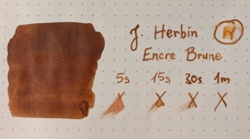 J. Herbin
Encre Brune
5s 15s 30s 1m
X X X X